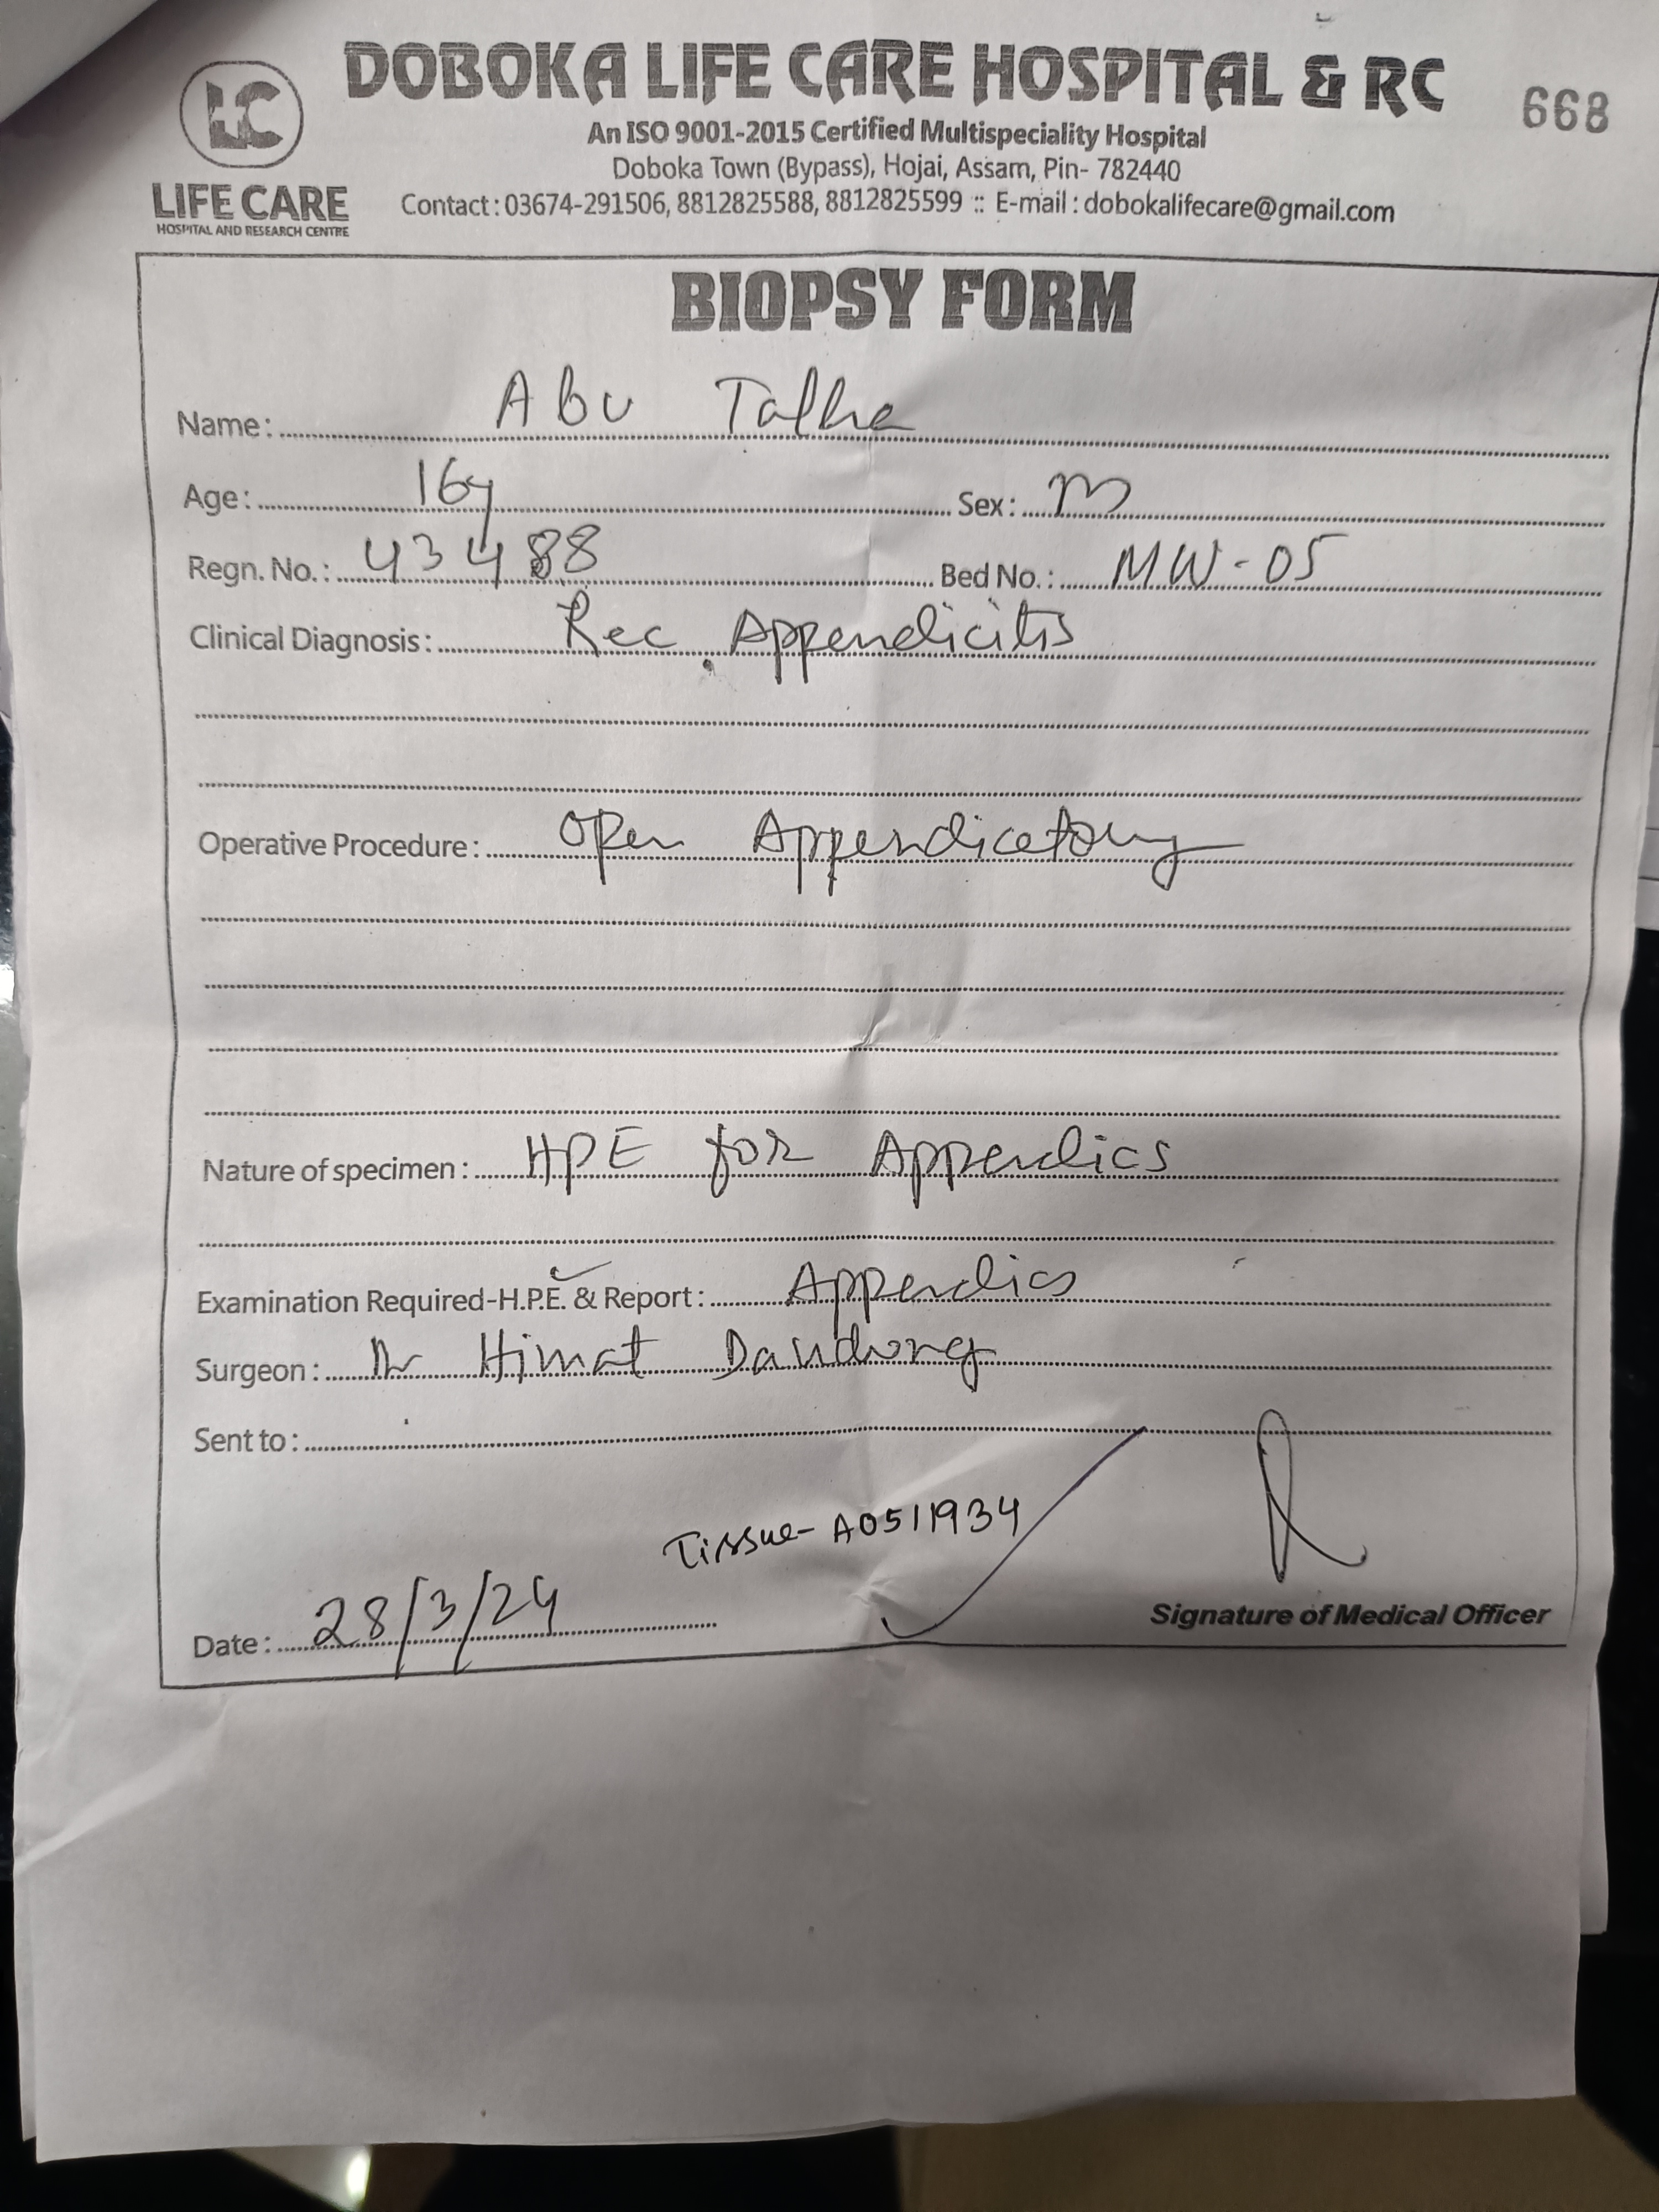 DOBOKA LIFE CARE HOSPITAL & RC
668
An ISO 9001-2015 Certified Multispeciality Hospital
Doboka Town (Bypass), Hojai, Assam, Pin- 782440
Contact : 03674-291506, 8812825588, 8812825599 :: E-mail : dobokalifecare@gmail.com
LC
LIFE CARE
HOSPITAL AND RESEARCH CENTRE
BIOPSY FORM
Name: Abu Talha
Age: 16y Sex: M
Regn. No.: 43488 Bed No.: MW-05
Clinical Diagnosis: Rec. Appendicitis
Operative Procedure: Open Appendicetomy
Nature of specimen: HPE for Appendics
Examination Required-H.P.E. & Report: Appendics
Surgeon: Dr Himat
Sent to:
Tissue- A0511934
Date: 28/3/24
Signature of Medical Officer